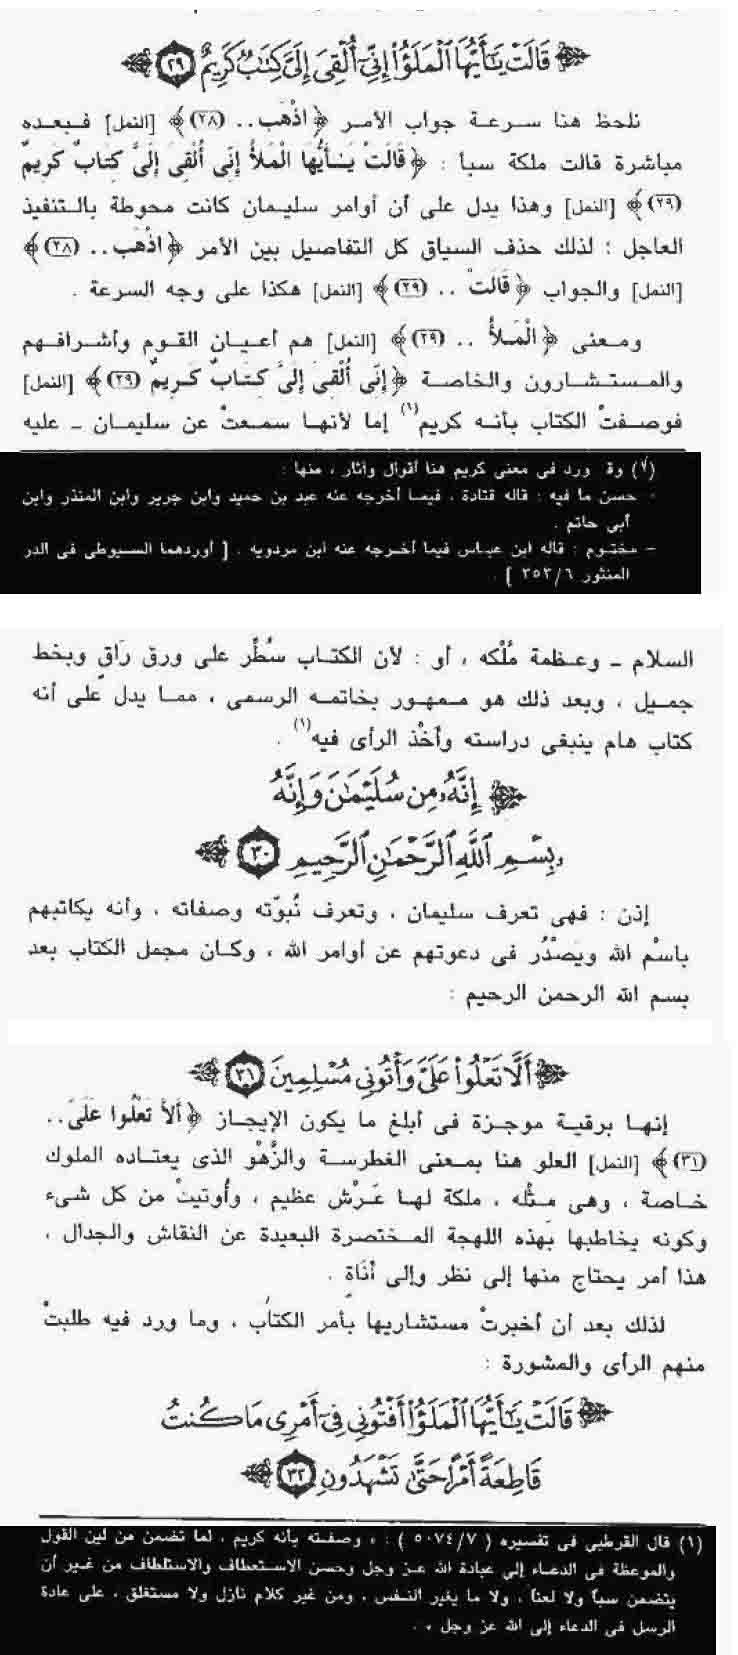 قَالَتْ يَٰٓأَيُّهَا ٱلْمَلَؤُا۟ إِنِّىٓ أُلْقِىَ إِلَىَّ كِتَٰبٌ كَرِيمٌ ٢٩
نلحظ هنا سرعة جواب الأمر ﴿ اذْهَب .. (٢٨) ﴾ [النمل] فبعده
مباشرة قالت ملكة سبأ : ﴿ قَالَتْ يَـٰأَيُّهَا الْمَلأُ إِنِّى أُلْقِىَ إِلَىَّ كِتَابٌ كَرِيمٌ
(٢٩) ﴾ [النمل] وهذا يدل على أن أوامر سليمان كانت محوطة بالتنفيذ
العاجل ؛ لذلك حذف السياق كل التفاصيل بين الأمر ﴿ اذْهَب .. (٢٨) ﴾
[النمل] والجواب ﴿ قَالَتْ .. (٢٩) ﴾ [النمل] هكذا على وجه السرعة .
ومعنى ﴿ الْمَلأُ .. (٢٩) ﴾ [النمل] هم أعيان القوم وأشرافهم
والمستشارون والخاصة ﴿ إِنِّى أُلْقِىَ إِلَىَّ كِتَابٌ كَرِيمٌ (٢٩) ﴾ [النمل]
فوصفتْ الكتاب بأنه كريم(١) إما لأنها سمعتْ عن سليمان ـ عليه
(١) وقد ورد فى معنى كريم هنا أقوال وآثار ، منها :
- حسن ما فيه : قاله قتادة . فيما أخرجه عنه عبد بن حميد وابن جرير وابن المنذر وابن
أبى حاتم .
- مختوم : قاله ابن عباس فيما أخرجه عنه ابن مردويه . [ أوردهما السيوطى فى الدر
المنثور ٣٥٣/٦ ] .
السلام ـ وعظمة مُلْكه ، أو : لأن الكتاب سُطِّر على ورق رَاقٍ وبخط
جميل ، وبعد ذلك هو ممهور بخاتمه الرسمى ، مما يدل على أنه
كتاب هام ينبغى دراسته وأخْذ الرأى فيه(١) .
إِنَّهُۥ مِن سُلَيْمَٰنَ وَإِنَّهُۥ
بِسْمِ ٱللَّهِ ٱلرَّحْمَٰنِ ٱلرَّحِيمِ ٣٠
إذن : فهى تعرف سليمان ، وتعرف نُبوّته وصفاته ، وأنه يكاتبهم
باسْم الله ويَصْدُر فى دعوتهم عن أوامر الله ، وكان مجمل الكتاب بعد
بسم الله الرحمن الرحيم :
أَلَّا تَعْلُوا۟ عَلَىَّ وَأْتُونِى مُسْلِمِينَ ٣١
إنها برقية موجزة فى أبلغ ما يكون الإيجاز ﴿ أَلاَّ تَعْلُوا عَلَىَّ ..
(٣١) ﴾ [النمل] العلو هنا بمعنى الغطرسة والزَّهْو الذى يعتاده الملوك
خاصة ، وهى مثْله ، ملكة لها عَرْش عظيم ، وأُوتيتْ من كل شىء
وكونه يخاطبها بهذه اللهجة المختصرة البعيدة عن النقاش والجدال ،
هذا أمر يحتاج منها إلى نظر وإلى أنَاةٍ .
لذلك بعد أن أخبرتْ مستشاريها بأمر الكتاب ، وما ورد فيه طلبتْ
منهم الرأى والمشورة :
قَالَتْ يَٰٓأَيُّهَا ٱلْمَلَؤُا۟ أَفْتُونِى فِىٓ أَمْرِى مَا كُنتُ
قَاطِعَةً أَمْرًا حَتَّىٰ تَشْهَدُونِ ٣٢
(١) قال القرطبى فى تفسيره ( ٥٠٧٤/٧ ) : « وصفته بأنه كريم ، لما تضمن من لين القول
والموعظة فى الدعاء إلى عبادة الله عز وجل وحسن الاستعطاف والاستلطاف من غير أن
يتضمن سباً ولا لعناً ، ولا ما يغير النفس ، ومن غير كلام نازل ولا مستغلق ، على عادة
الرسل فى الدعاء إلى الله عز وجل » .